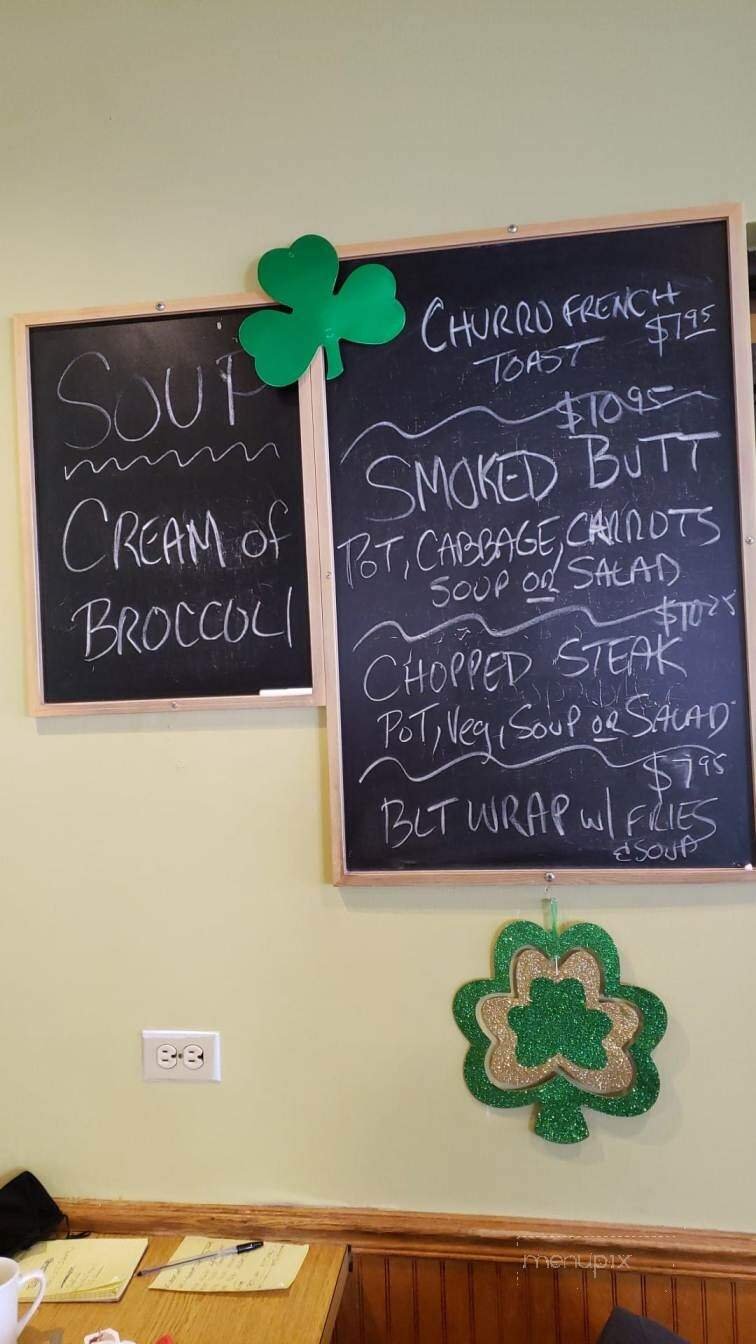 SOUP
CREAM of
BROCCOLI
CHURRO FRENCH
TOAST $7.95
$10.95
SMOKED BUTT
POT, CABBAGE, CARROTS
SOUP or SALAD
CHOPPED STEAK
POT, Veg, SOUP or SALAD
$7.95
BLT WRAP w/ FRIES
& SOUP
menupix